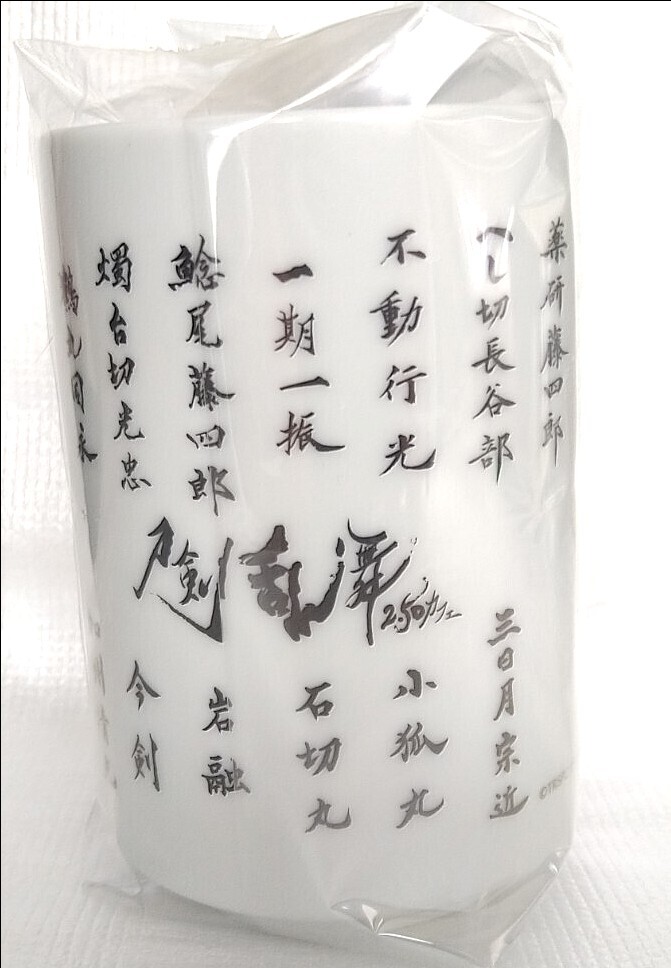 薬研藤四郎
へし切長谷部
不動行光
一期一振
鯰尾藤四郎
燭台切光忠
鶴丸国永
刀剣乱舞2.5Dカフェ
三日月宗近
小狐丸
石切丸
岩融
今剣
加州清光